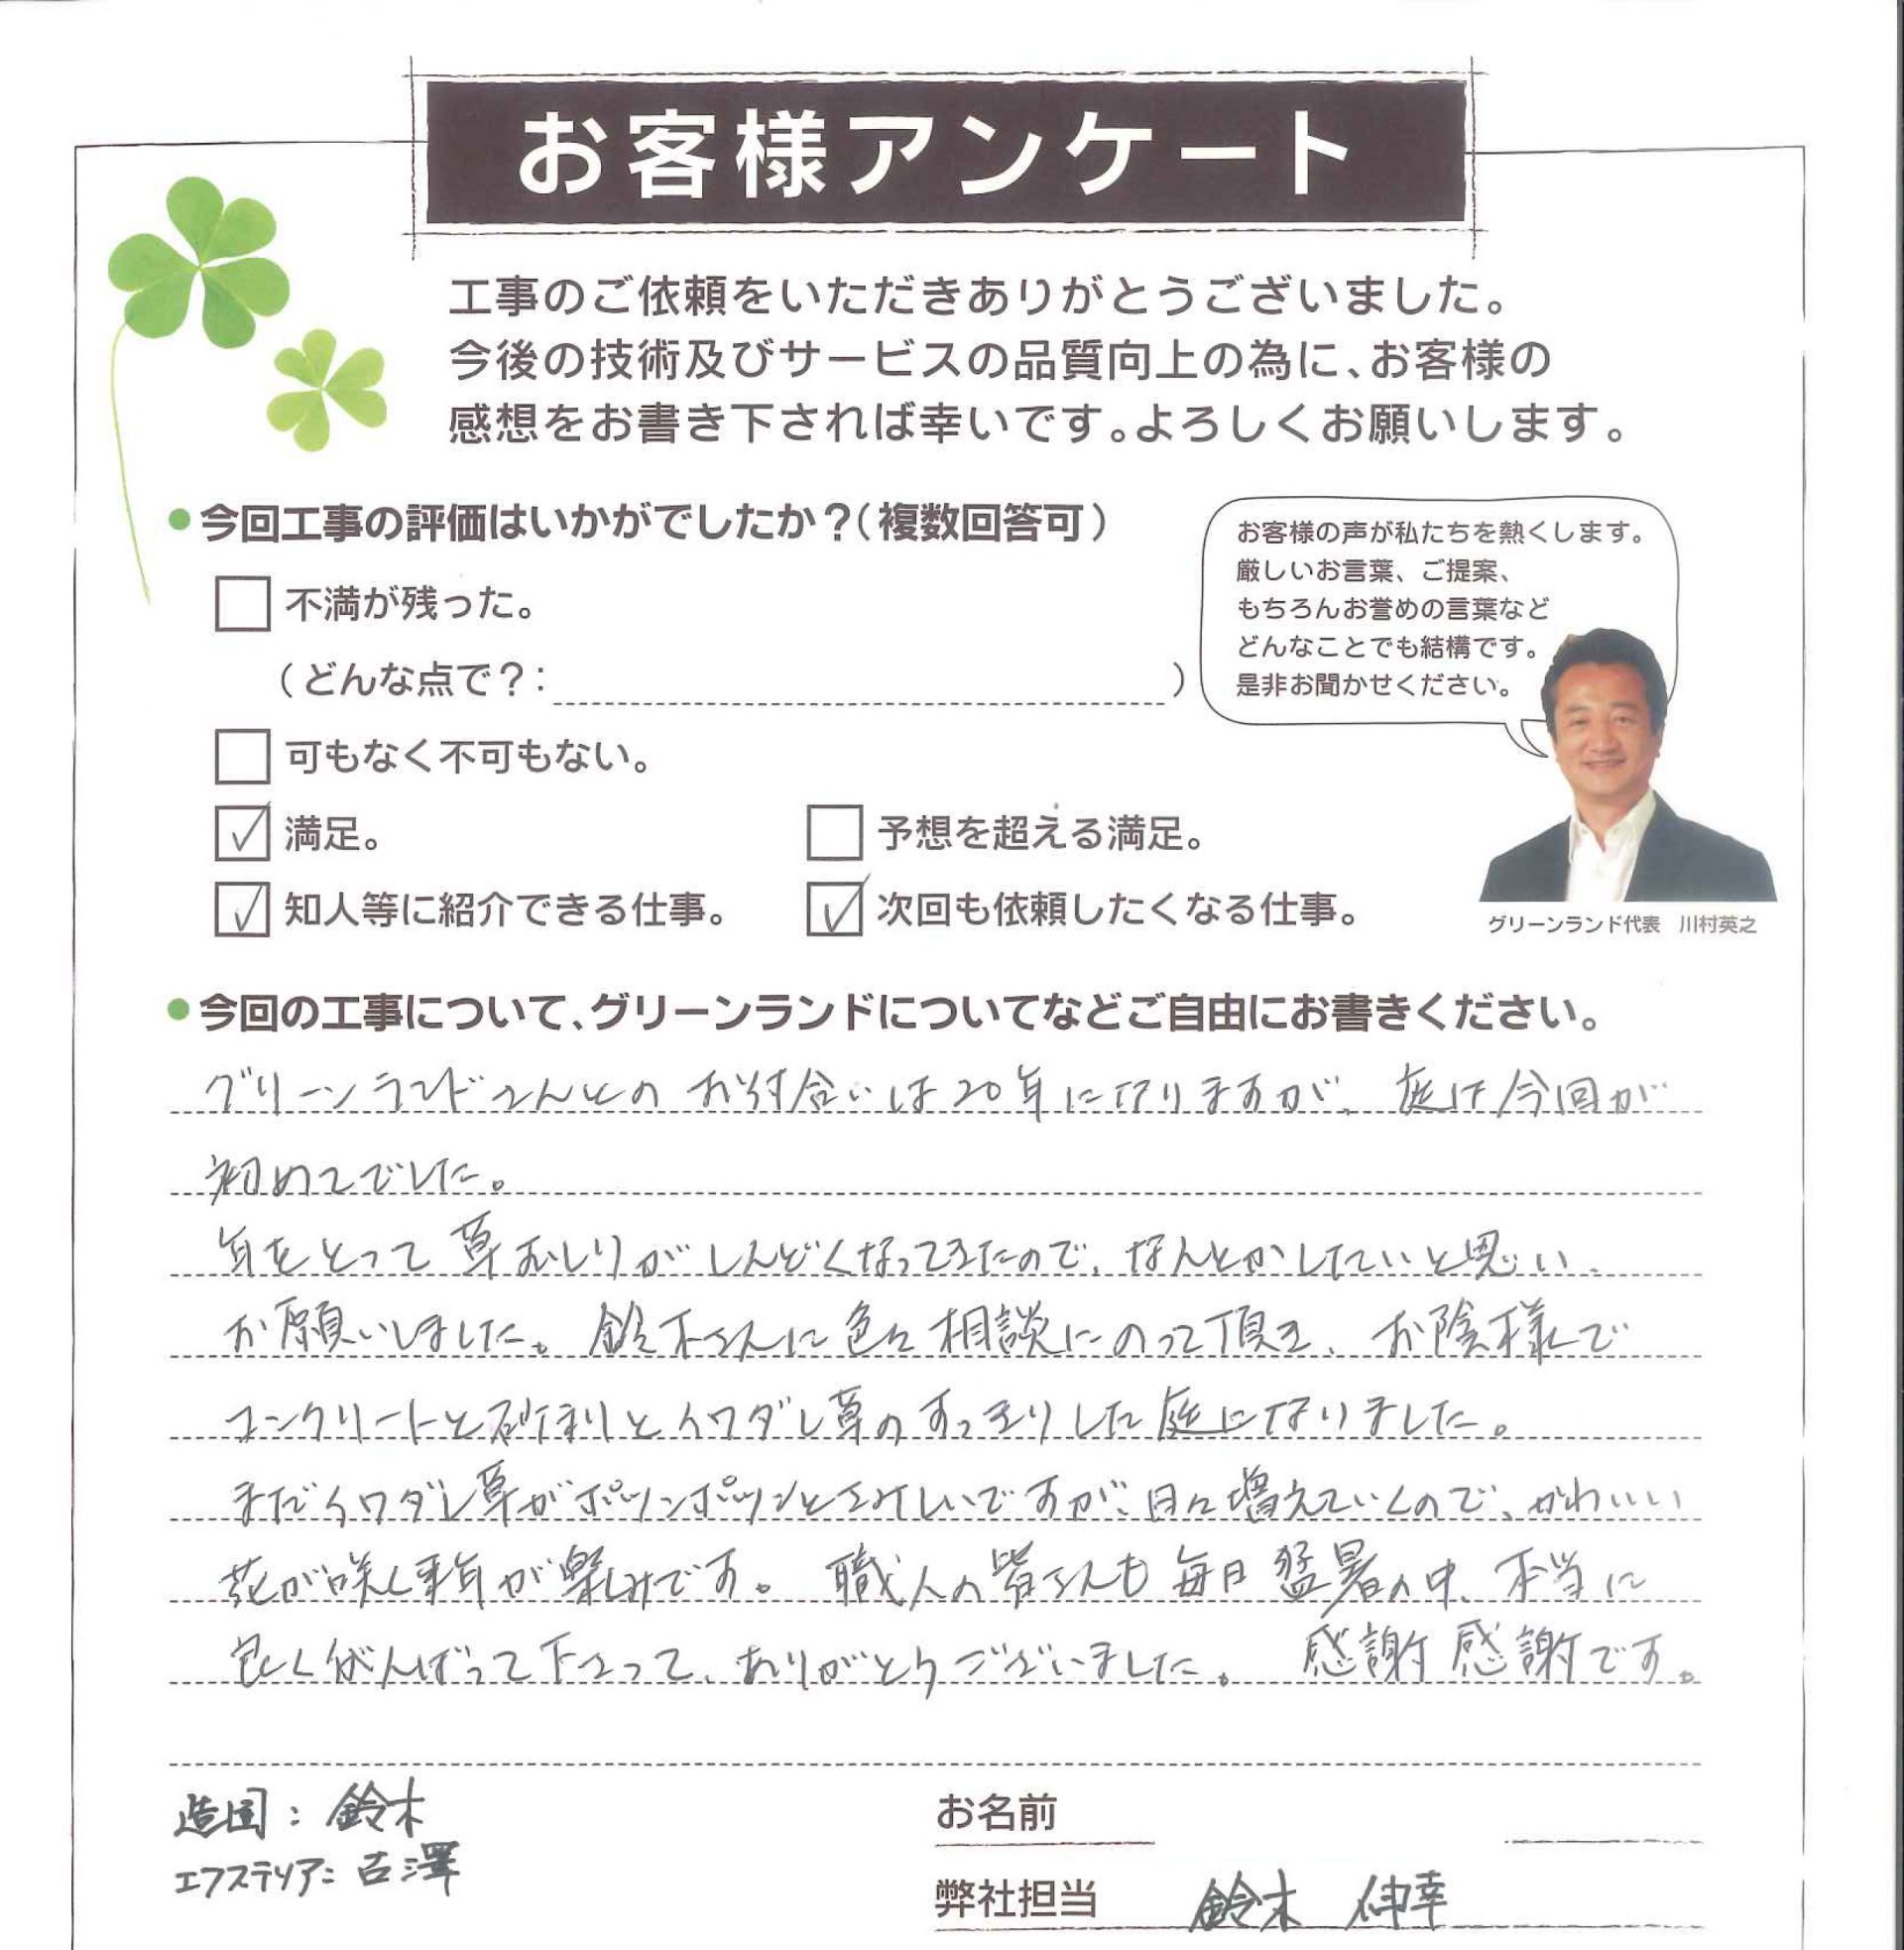 お客様アンケート
工事のご依頼をいただきありがとうございました。
今後の技術及びサービスの品質向上の為に、お客様の
感想をお書き下されば幸いです。よろしくお願いします。
●今回工事の評価はいかがでしたか？（複数回答可）
不満が残った。
（どんな点で？：　　　）
可もなく不可もない。
✓満足。
予想を超える満足。
✓知人等に紹介できる仕事。
✓次回も依頼したくなる仕事。
お客様の声が私たちを熱くします。
厳しいお言葉、ご提案、
もちろんお誉めの言葉など
どんなことでも結構です。
是非お聞かせください。
グリーンランド代表　川村英之
●今回の工事について、グリーンランドについてなどご自由にお書きください。
グリーンランドさんとのお付合いは20年になりますが、庭は今回が
初めてでした。
年をとって草むしりがしんどくなってきたので、なんとかしたいと思い、
お願いしました。鈴木さんに色々相談にのって頂き、お陰様で
コンクリートと砂利とイワダレ草のすっきりした庭になりました。
まだイワダレ草がポツンポツンとさみしいですが、日々増えていくので、かわいい
花が咲く来年が楽しみです。職人の皆さんも毎日猛暑の中、本当に
良くがんばって下さって、ありがとうございました。感謝感謝です。
造園：鈴木
エクステリア：古澤
お名前
弊社担当　鈴木　伸幸